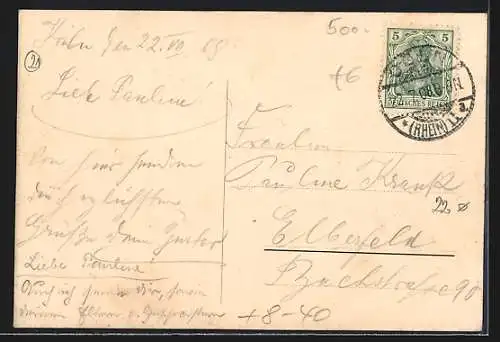 Köln den 22. VII 05
Liebe Pauline!
Von hier senden
dir die herzlichsten
Grüße dein Gustav
Liebe Pauline!
Auch ich sende dir, sowie
deinen Eltern u. Geschwistern
500.-
+6
21
5 5
DEUTSCHES REICH
(RHEIN)
Fräulein
Pauline Krauß
22
Elberfeld
Bachstrasse 90
+8-40